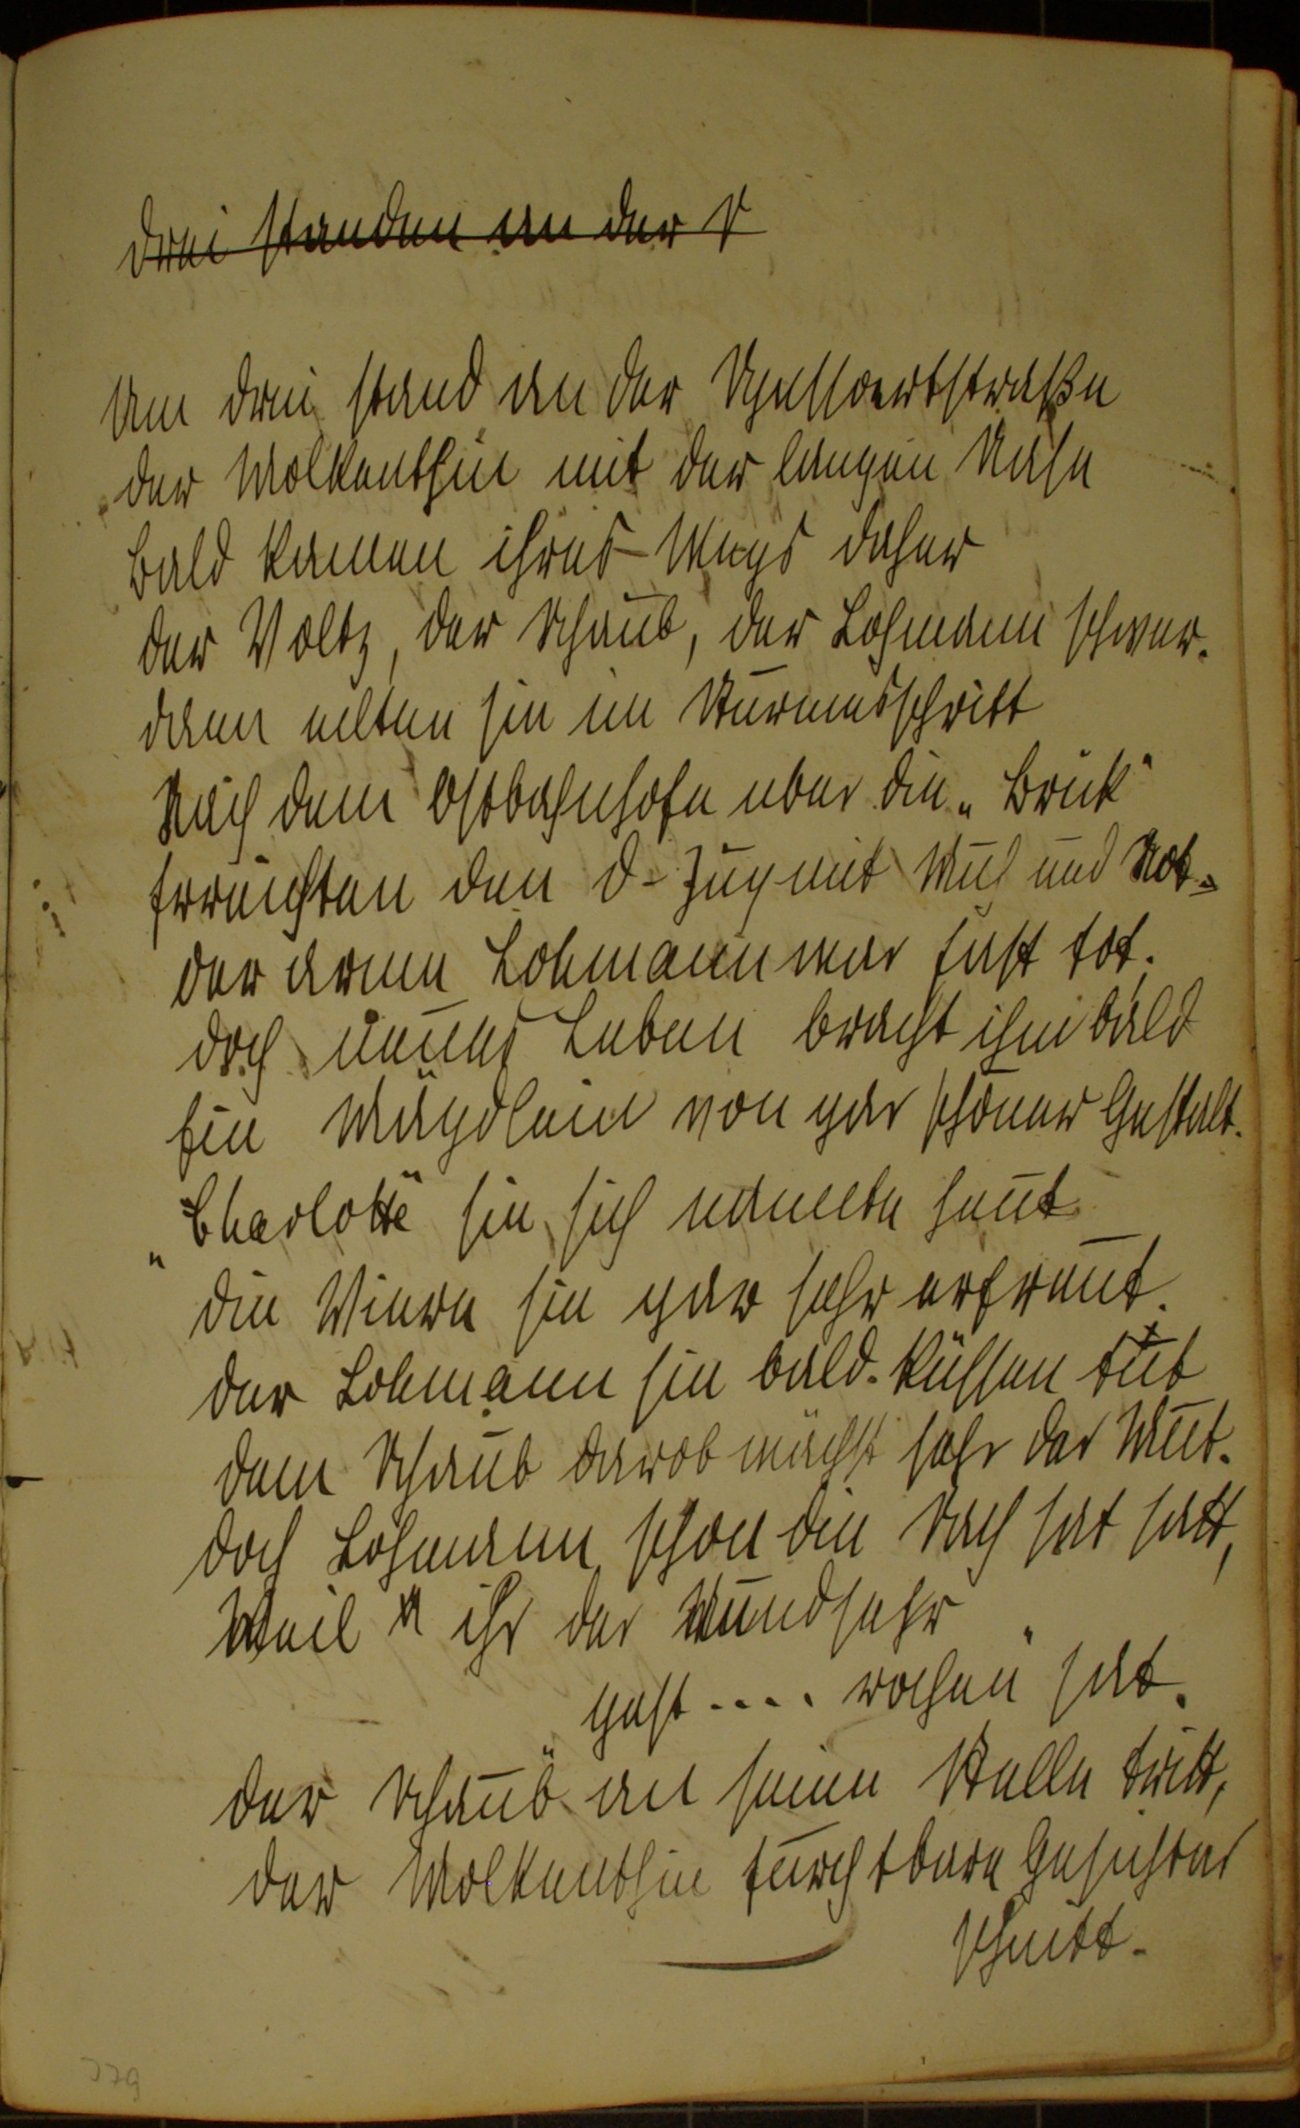 Drei standen an der S
Um drei stand an der Spessartstraße
der Molkenthin mit der langen Nase
Bald kamen ihres Wegs daher
der Voltz, der Schaub, der Lohmann schwer.
dann eilten sie im Sturmesschritt
Nach dem Ostbahnhofe über die „Brick"
Erreichten den D-Zug mit Müh und Not.
der arme Lohmann war fast tot.
doch neues Leben bracht ihm bald
Ein Mägdlein von gar schöner Gestalt.
„Charlotte" sie sich nannte heut
die Viere sie gar sehr erfreut.
der Lohmann sie bald küssen tut
dem Schaub darob wächst sehr der Mut.
doch Lohmann schon die Sach hat satt,
Weil „ ihr der Mund sehr
gest.... rochen" hat.
der Schaub an seine Stelle tritt,
der Molkenthin furchtbare Gesichter
schnitt.